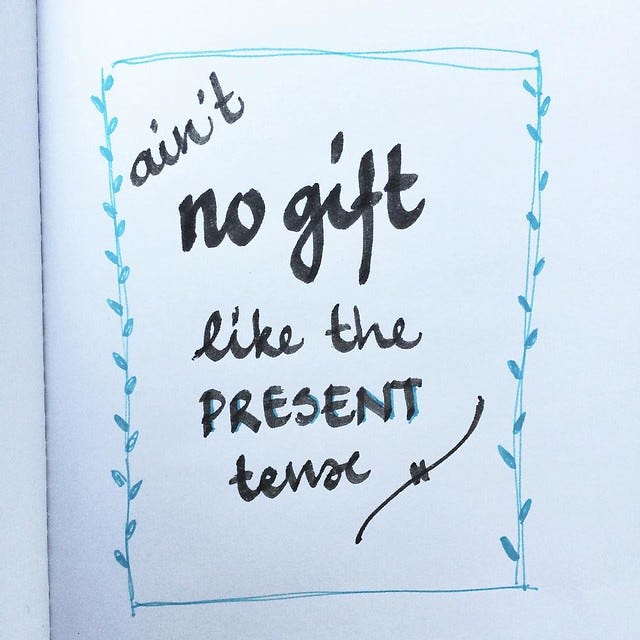 ain't
no gift
like the
PRESENT
tense